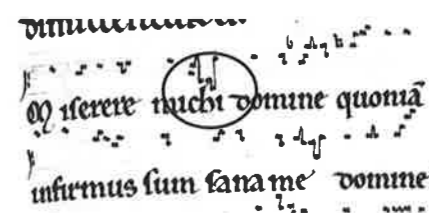 Miserere michi domine quoniã
infirmus sum sana me domine